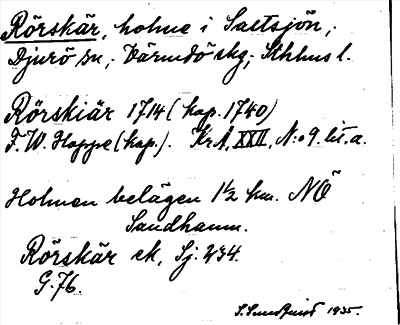 Rörskär, holme i Saltsjön,
Djurö sn, Värmdö skg, Sthlms l.
Rörskiär 1714 (kop. 1740)
F. W. Hoppe (kop.). Kr.A, XXII, N:o 9. lit. a.
Holmen belägen 1½ km. NÖ
Sandhamn.
Rörskär ek, Sj. 234.
G. 76.
S. Sundquist 1935.